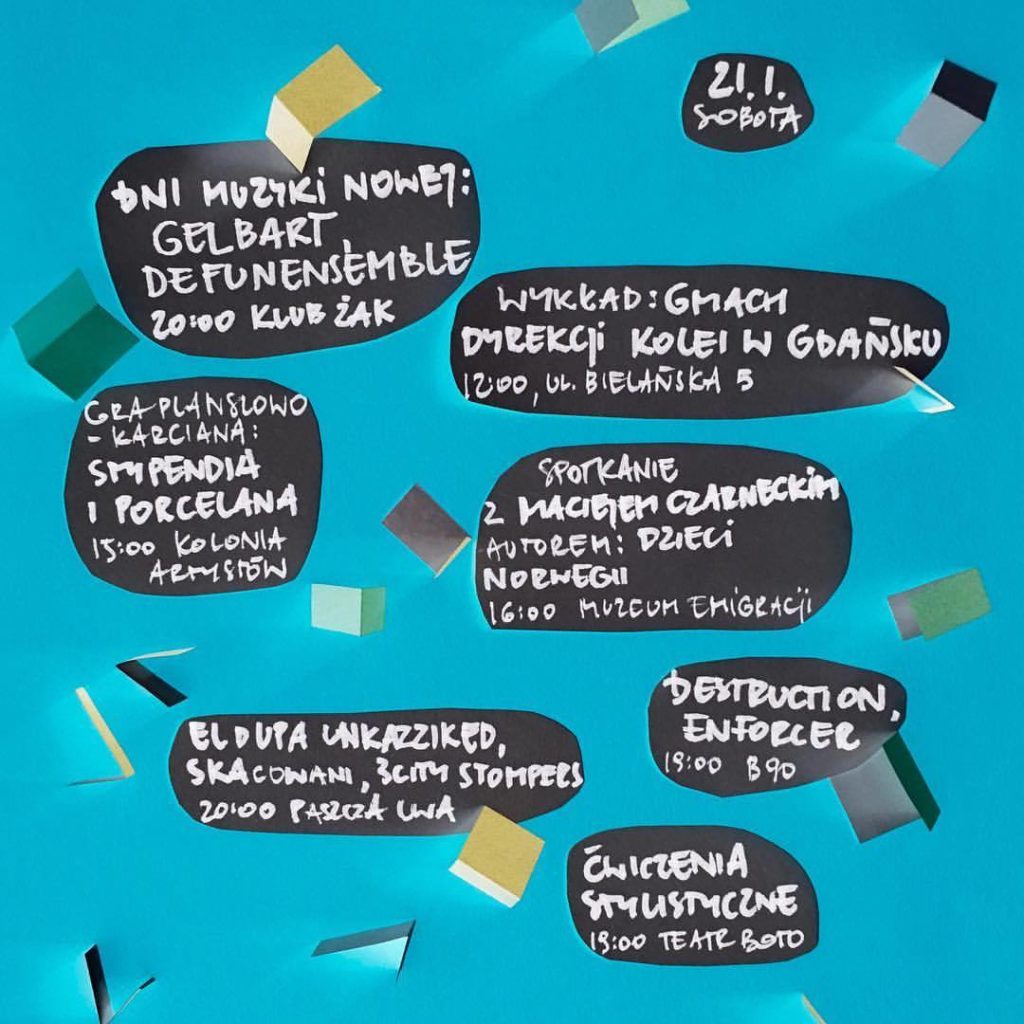 21.1.
SOBOTA
DNI MUZYKI NOWEJ:
GELBART,
DEFUNENSEMBLE
20:00 KLUB ŻAK
WYKŁAD: GMACH
DYREKCJI KOLEI W GDAŃSKU
12:00, UL. BIELAŃSKA 5
GRA PLANSZOWO
- KARCIANA:
STYPENDIA
I PORCELANA
15:00 KOLONIA
ARTYSTÓW
SPOTKANIE
Z MACIEJEM CZARNECKIM
AUTOREM: DZIECI
NORWEGII
16:00 MUZEUM EMIGRACJI
DESTRUCTION,
ENFORCER
19:00 B90
ELDUPA UNKAZZIKED,
SKACOWANI, 3CITY STOMPERS
20:00 PASZCZA LWA
ĆWICZENIA
STYLISTYCZNE
19:00 TEATR BOTO